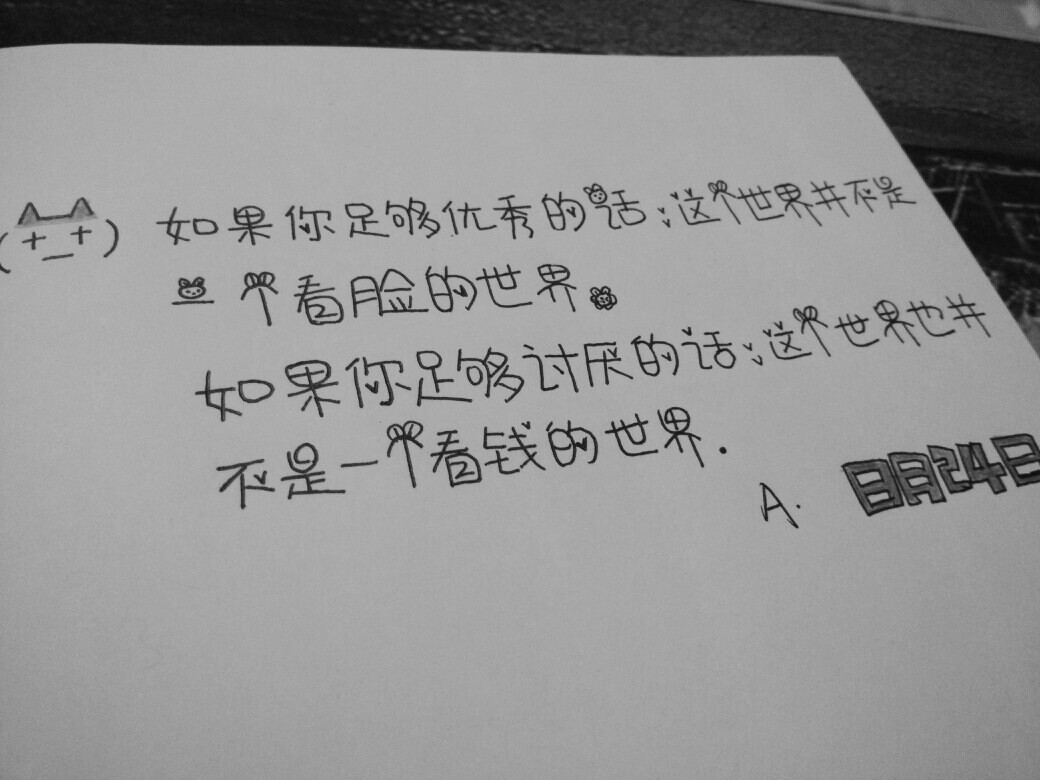 如果你足够优秀的话;这个世界并不是
一个看脸的世界。
如果你足够讨厌的话;这个世界也并
不是一个看钱的世界.
A. 8月24日